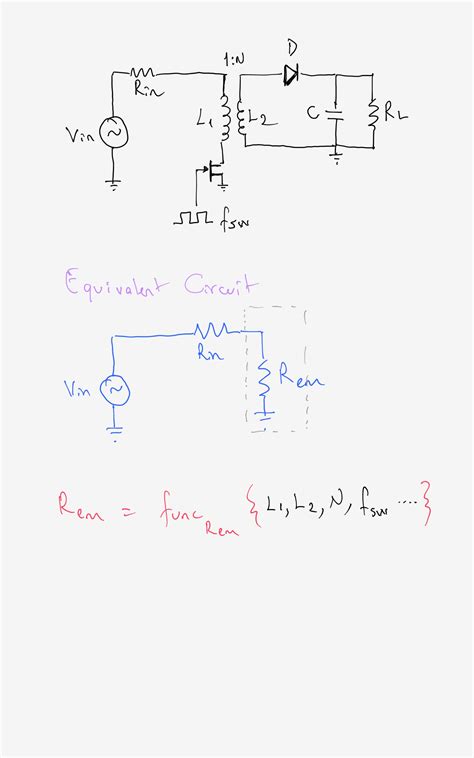 1:N D
Rin
L1 L2 C RL
Vin
fsw
Equivalent Circuit
Rin
Rem
Vin
Rem = func Rem {L1, L2, N, fsw ....}